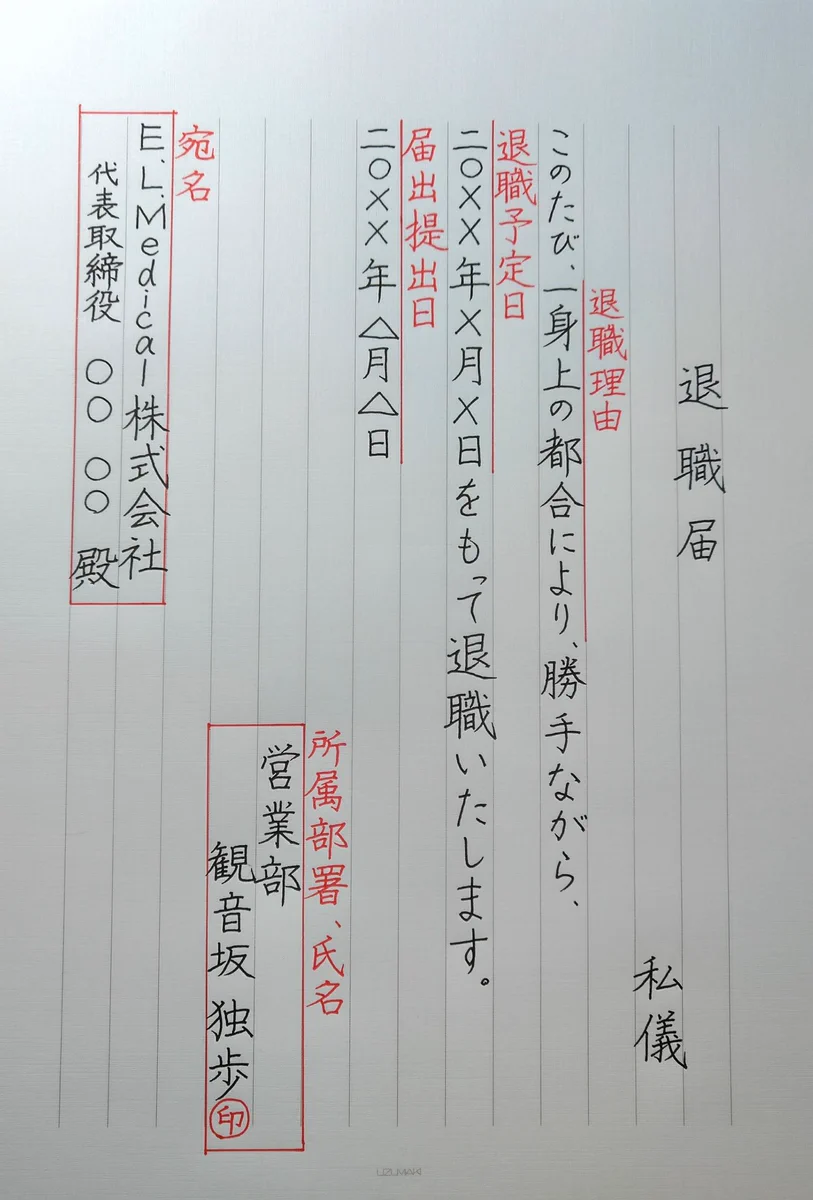 退職届
私儀
退職理由
このたび、一身上の都合により、勝手ながら、
退職予定日
二〇××年×月×日をもって退職いたします。
届出提出日
二〇××年△月△日
所属部署、氏名
営業部
観音坂 独歩 印
宛名
E.L.Medical株式会社
代表取締役 〇〇 〇〇 殿
UZUMAKI